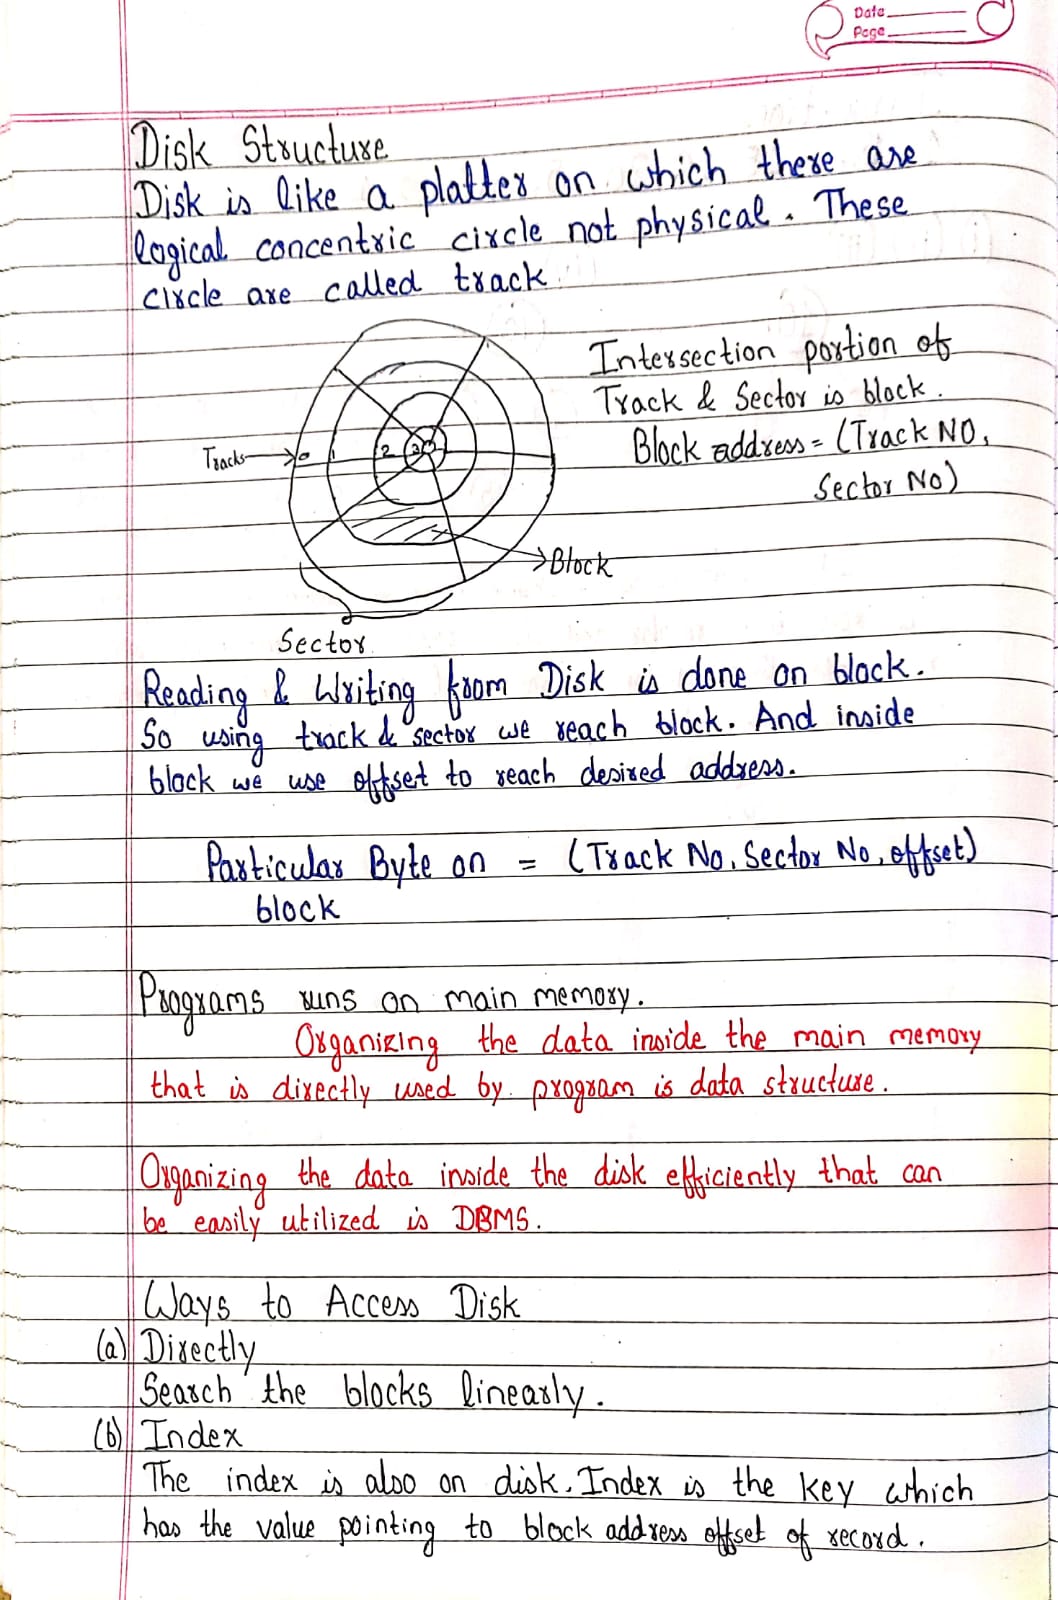 Date
Page
Disk Structure
Disk is like a platter on which there are
logical concentric circle not physical. These
circle are called track
Intersection portion of
Track & Sector is block.
Block address = (Track NO,
Sector No)
Tracks 0 1 2 3
Block
Sector
Reading & Writing from Disk is done on block.
So using track & sector we reach block. And inside
block we use offset to reach desired address.
Particular Byte on = (Track No, Sector No, offset)
block
Programs runs on main memory.
Organizing the data inside the main memory
that is directly used by program is data structure.
Organizing the data inside the disk efficiently that can
be easily utilized is DBMS.
Ways to Access Disk
(a) Directly
Search the blocks linearly.
(b) Index
The index is also on disk. Index is the key which
has the value pointing to block address offset of record.